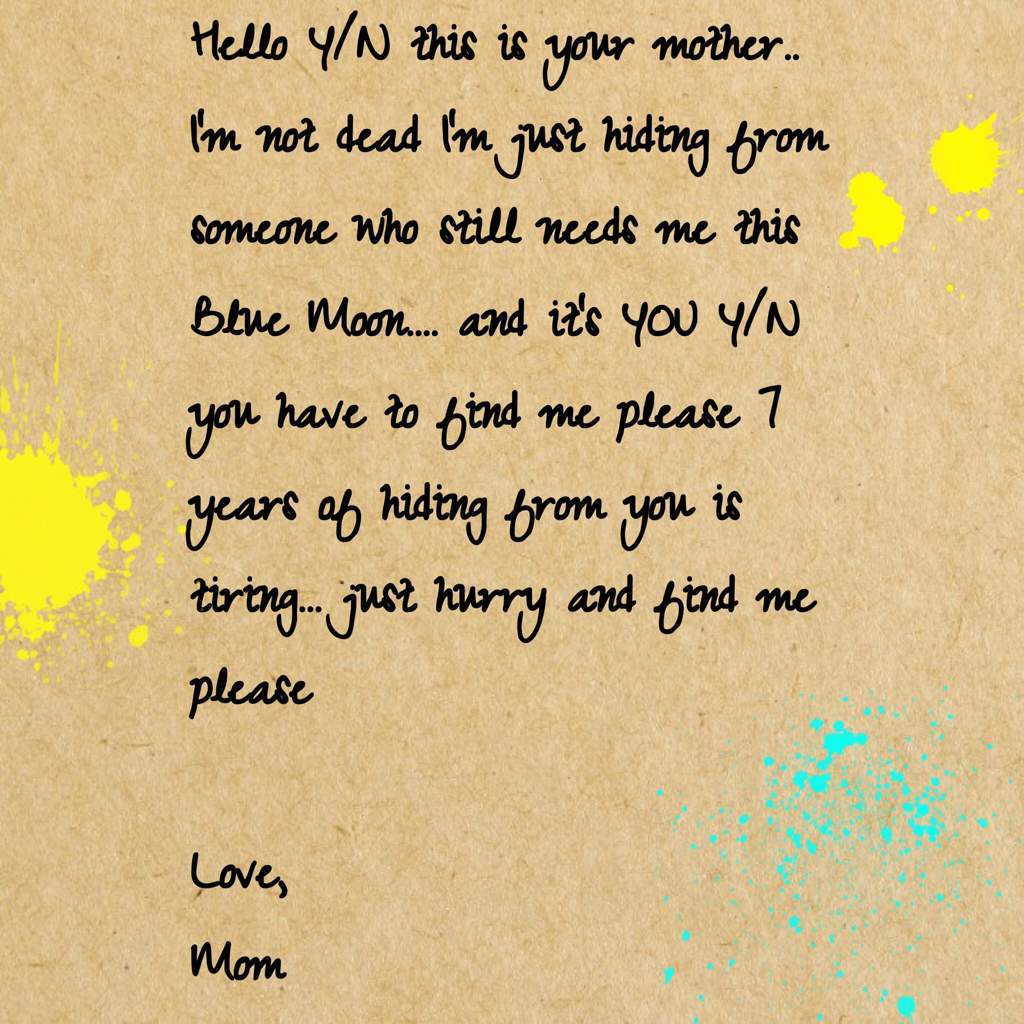 Hello Y/N this is your mother..
I'm not dead I'm just hiding from
someone who still needs me this
Blue Moon.... and it's YOU Y/N
you have to find me please 7
years of hiding from you is
tiring... just hurry and find me
please
Love,
Mom